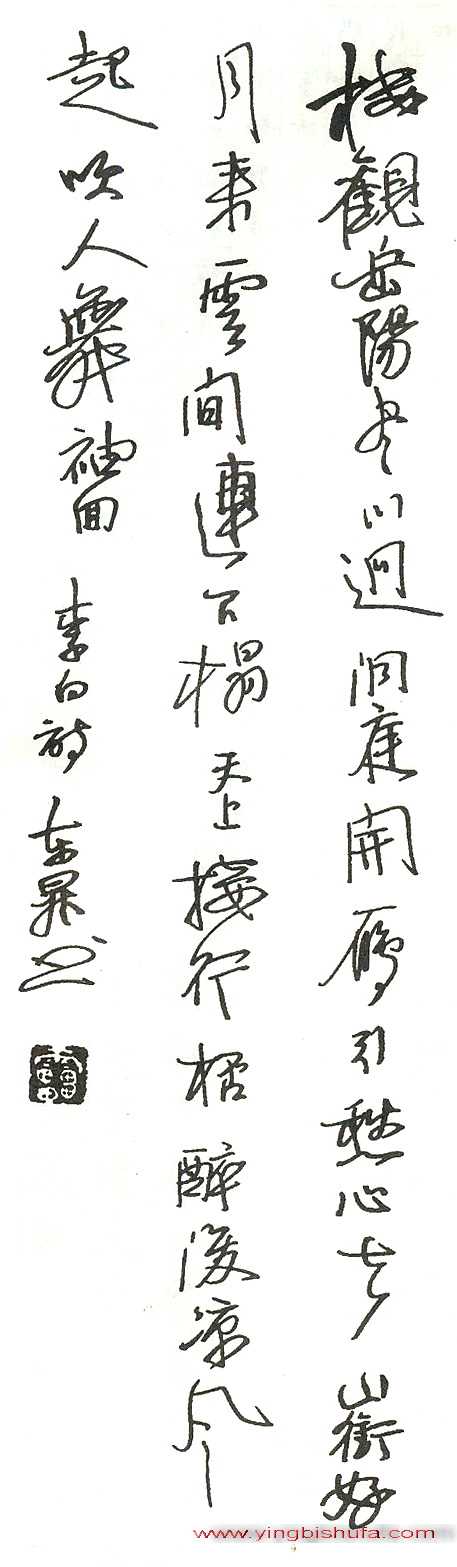 楼觀岳陽尽川迥洞庭開雁引愁心去山銜好
月来雲間連下榻天上接行桮醉後涼风
起吹人舞袖回
李白詩 书
www.yingbishufa.com